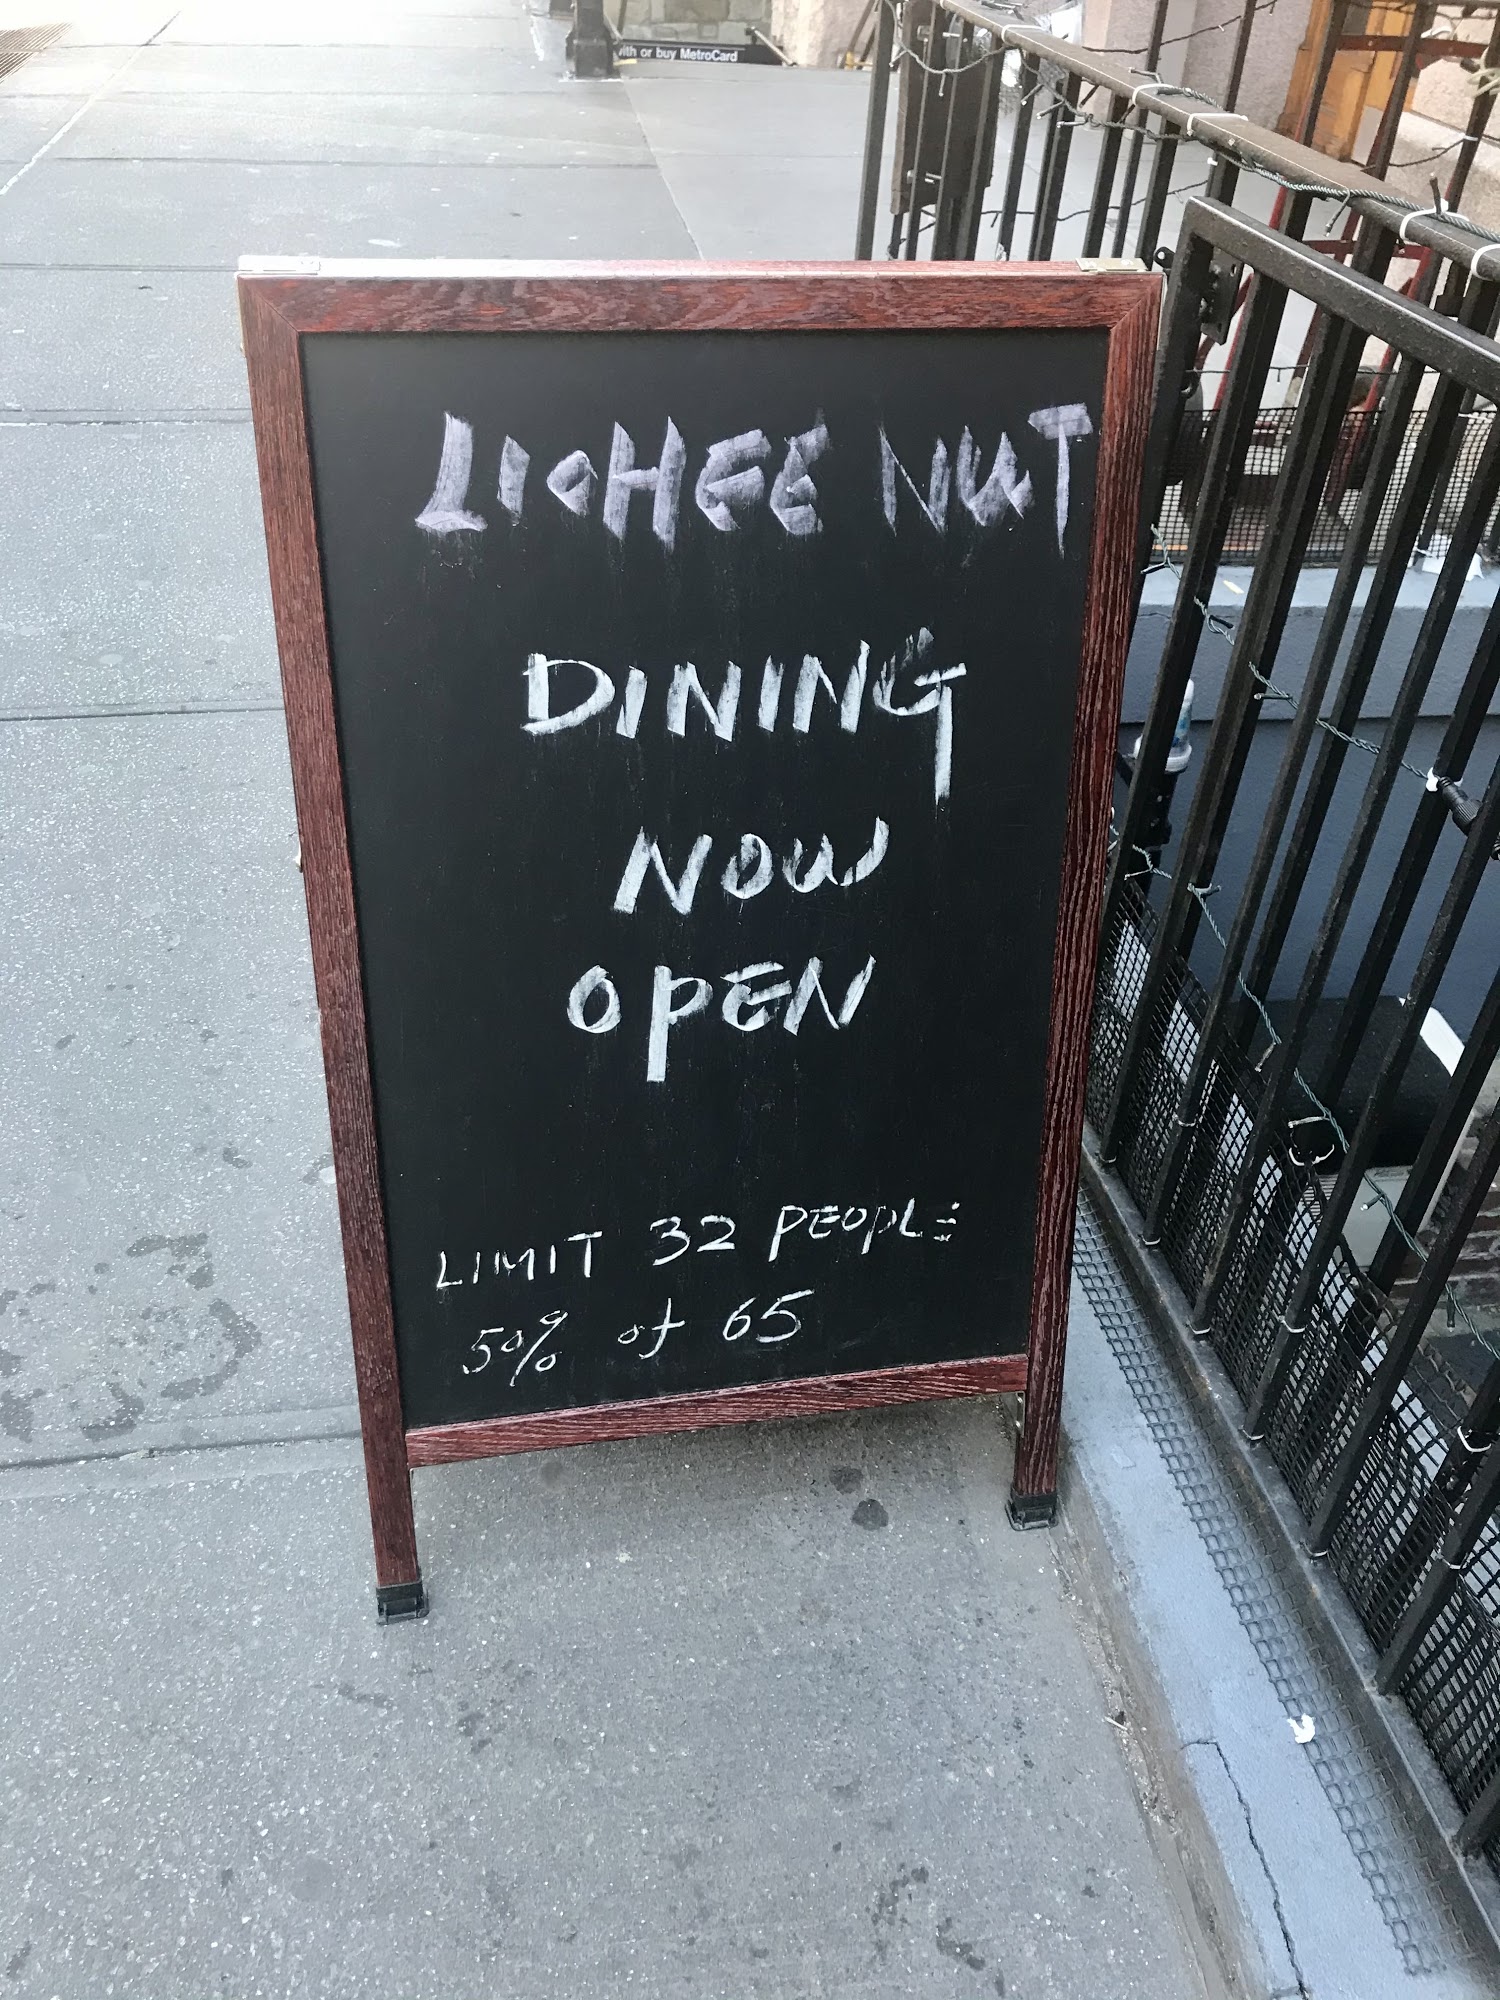 with or buy MetroCard
LICHEE NUT
DINING
NOW
OPEN
LIMIT 32 PEOPLE
50% of 65